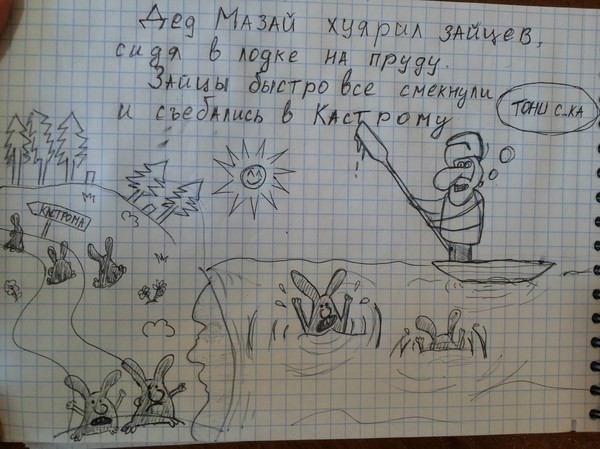 Дед Мазай хуярил зайцев,
сидя в лодке на пруду.
Зайцы быстро все смекнули
и съебались в Кастрому
ТОНИ С..КА
КАСТРОМА